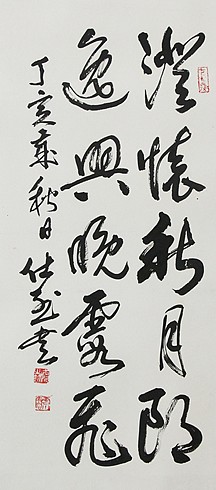 澄懷秋月朗
逸興晚霞飛
丁亥歲秋日仕書